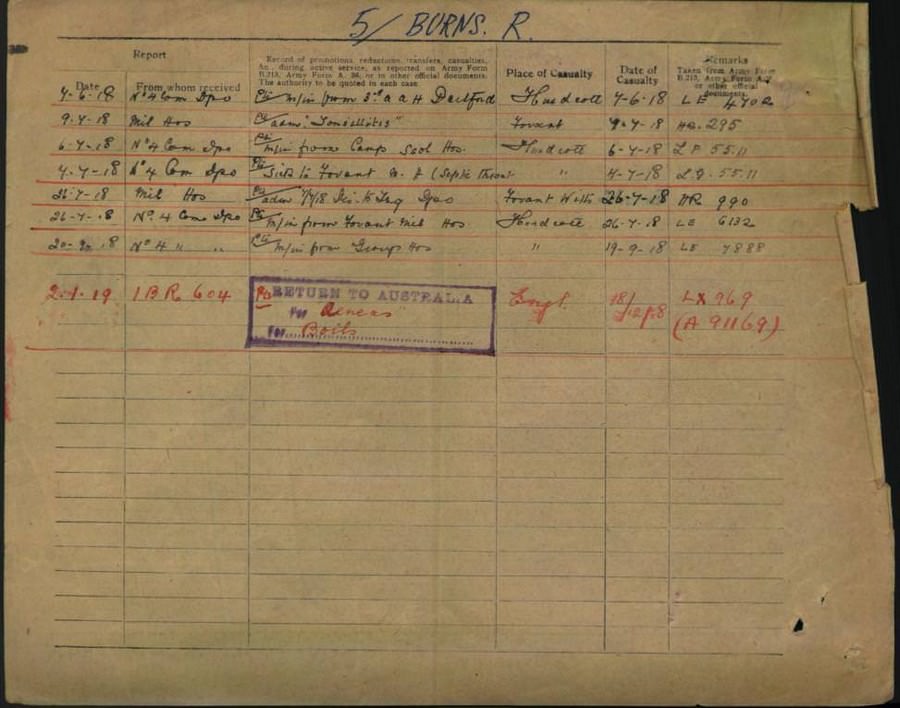 5/ BURNS. R.
Report
Date
From whom received
Record of promotions, reductions, transfers, casualties,
&c., during active service, as reported on Army Form
B.213, Army Form A. 36, or in other official documents.
The authority to be quoted in each case.
Place of Casualty
Date of
Casualty
Remarks
Taken from Army Form
B.213, Army Form A.36
or other official
documents.
7-6-18 No 4 Com Dpo Pte M/in from 3rd A A H Dartford Hurdcott 7-6-18 LE 4702
9-7-18 Mil Hos Pte adm "Tonsillitis" Fovant 9-7-18 HR. 295
6-7-18 No 4 Com Dpo Pte M/in from Camp Hos. Hurdcott 6-7-18 5511
4-7-18 No 4 Com Dpo Pte Sick to Fovant (Septic throat " 4-7-18 5511
26-7-18 Mil Hos Pte adm Dpo Fovant Wilts 26-7-18 HR 990
26-7-18 No. 4 Com Dpo Pte M/in from Fovant Mil Hos Hurdcott 26-7-18 LE 6132
18 No 4 " " Pte M/in from Hos " 19-9-18 LE 7888
2-1-19 1BR 604 Pte RETURN TO AUSTRALIA Engl. 18/12/18 LX 969
Per "Aeneas" (A 91169)
For Boils